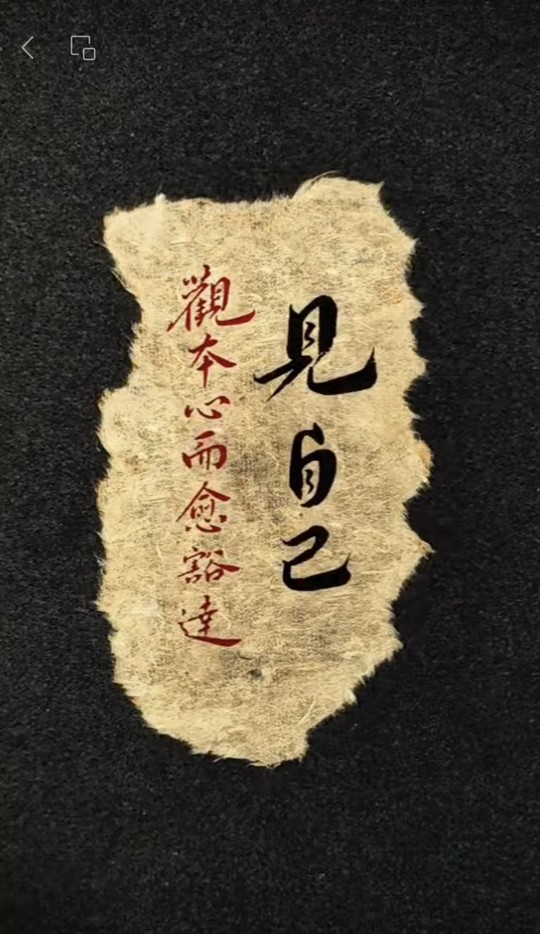 見自己
觀本心而愈豁達